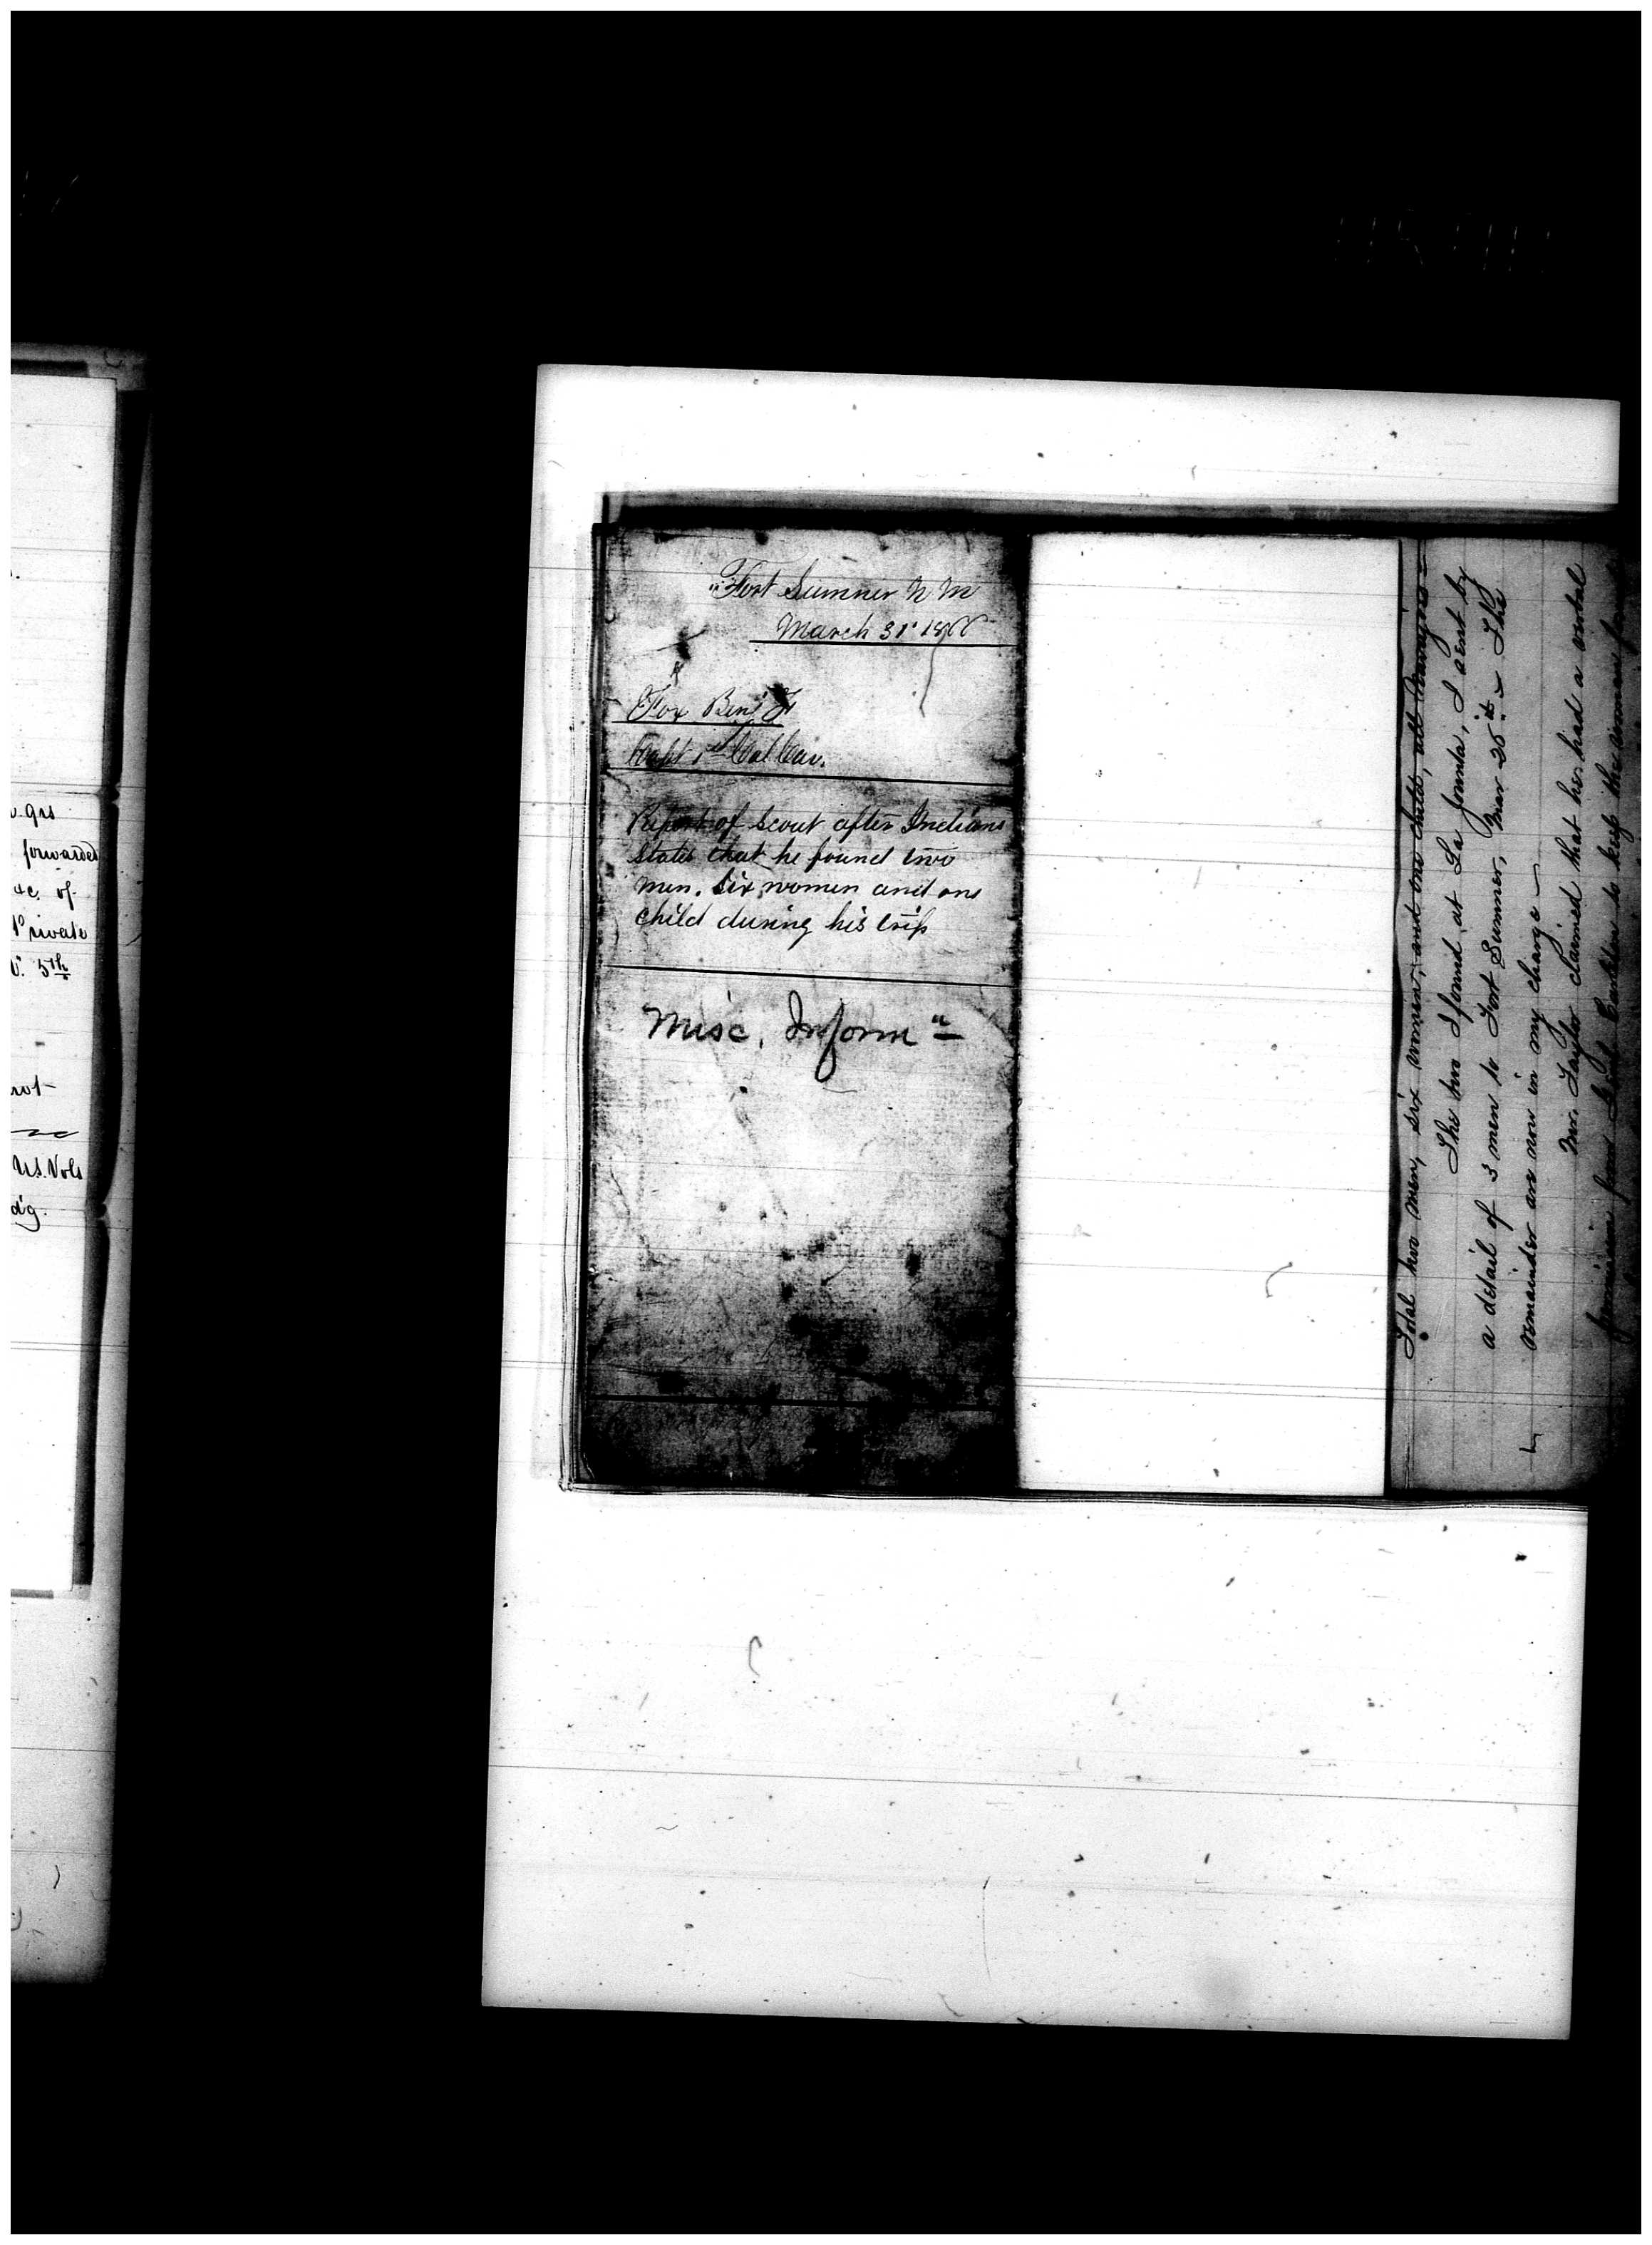 grs
forwarded
&c. of
Private
5th
not
U.S. Vols
d'g.
Fort Sumner N M
March 31st 1866
Fox Benj F
Capt 1st Cal Cav.
Report of Scout after Indians
States that he found two
men. Six women and one
child during his trip
Misc. Inform n
Total two men, six women, and one child, all
The two I found at La Junta, I sent by
a detail of 3 men to Fort Sumner, Mar 25th – The
remainder are now in my charge –
Mr. Taylor claimed that he had a verbal
permission from to keep the